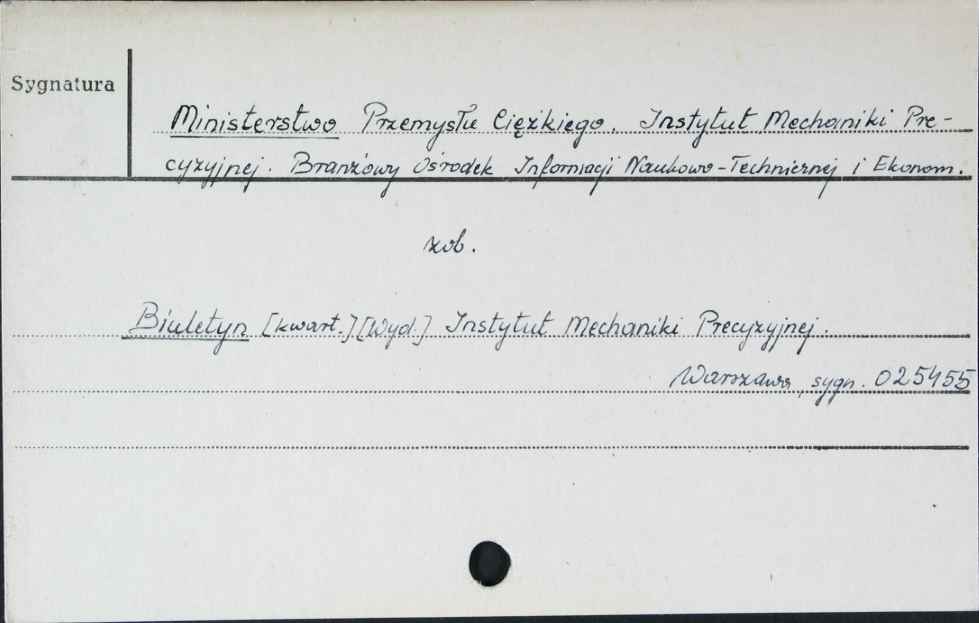 Sygnatura
Ministerstwo Przemysłu Ciężkiego. Instytut Mechaniki Pre-
cyzyjnej. Branżowy Ośrodek Informacji Naukowo-Technicznej i Ekonom.
zob.
Biuletyn [kwart.] [Wyd.] Instytut Mechaniki Precyzyjnej.
Warszawa, sygn. 025455